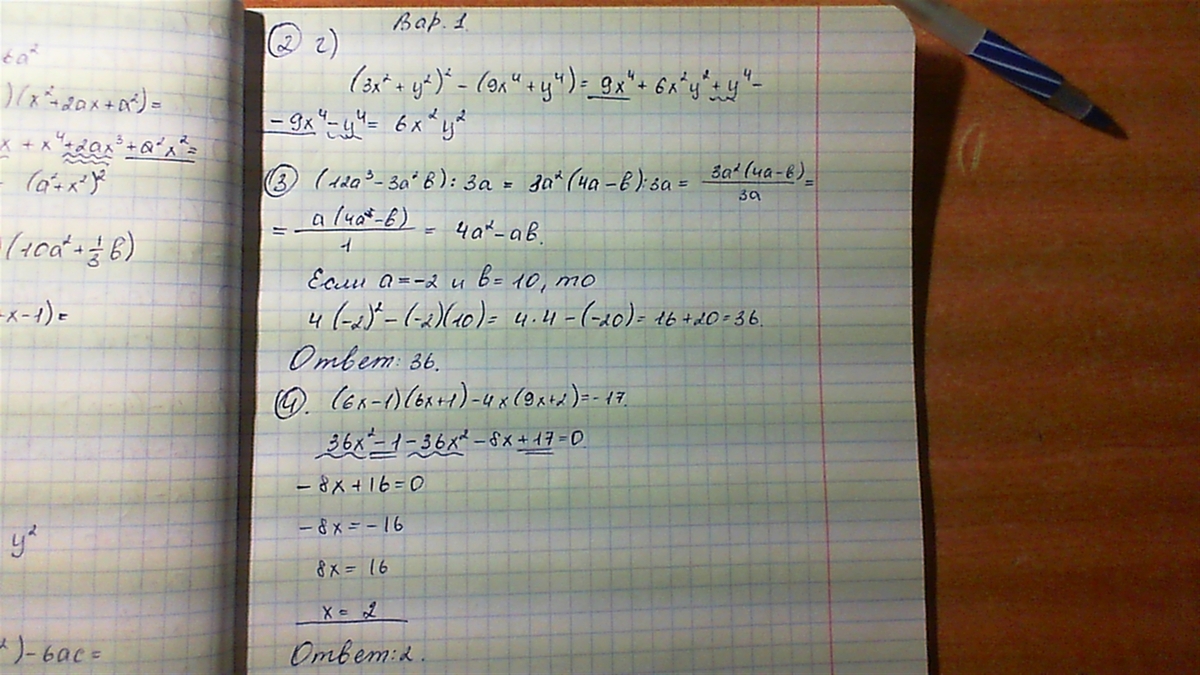 ta²
)(x²+2ax+a²)=
x + x⁴+2ax³+a²x²=
(a²+x²)²
(10a²+1/3 b)
-x-1)=
y²
²)-6ac=
Вар. 1.
② г)
(3x²+y²)² - (9x⁴+y⁴) = 9x⁴ + 6x²y² + y⁴ -
- 9x⁴ - y⁴ = 6x²y²
③ (12a³-3a²b) : 3a = 3a²(4a-b) : 3a = 3a²(4a-b)/3a =
= a(4a-b)/1 = 4a²-ab.
Если a=-2 и b=10, то
4(-2)² - (-2)(10) = 4·4 - (-20) = 16+20=36.
Ответ: 36.
④. (6x-1)(6x+1)-4x(9x+2)=-17.
36x²-1-36x²-8x+17=0
-8x+16=0
-8x=-16
8x=16
x=2
Ответ: 2.